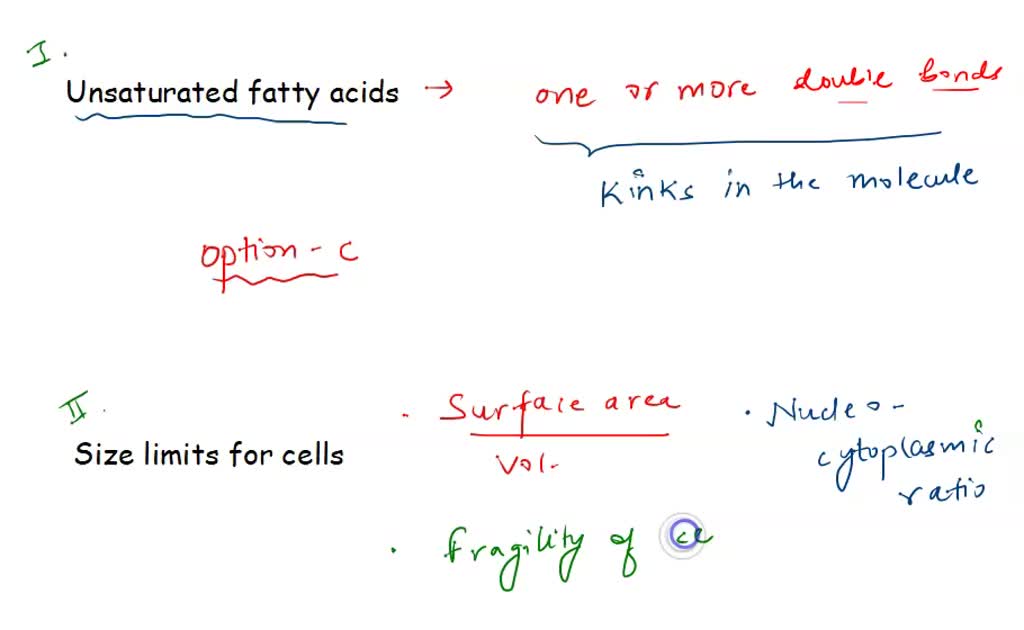 I.
Unsaturated fatty acids → one or more double bonds
Kinks in the molecule
option - C
II.
Size limits for cells
. Surface area
Vol.
. Nucleo-
cytoplasmic
ratio
. fragility of ce